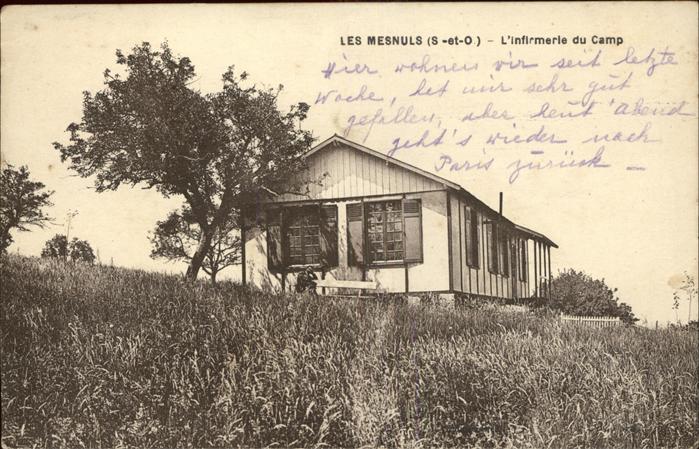 LES MESNULS (S-et-O.) - L'infirmerie du Camp
Hier wohnen wir seit letzte
Woche, hat mir sehr gut
gefallen, aber heut' Abend
geht's wieder nach
Paris zurück —